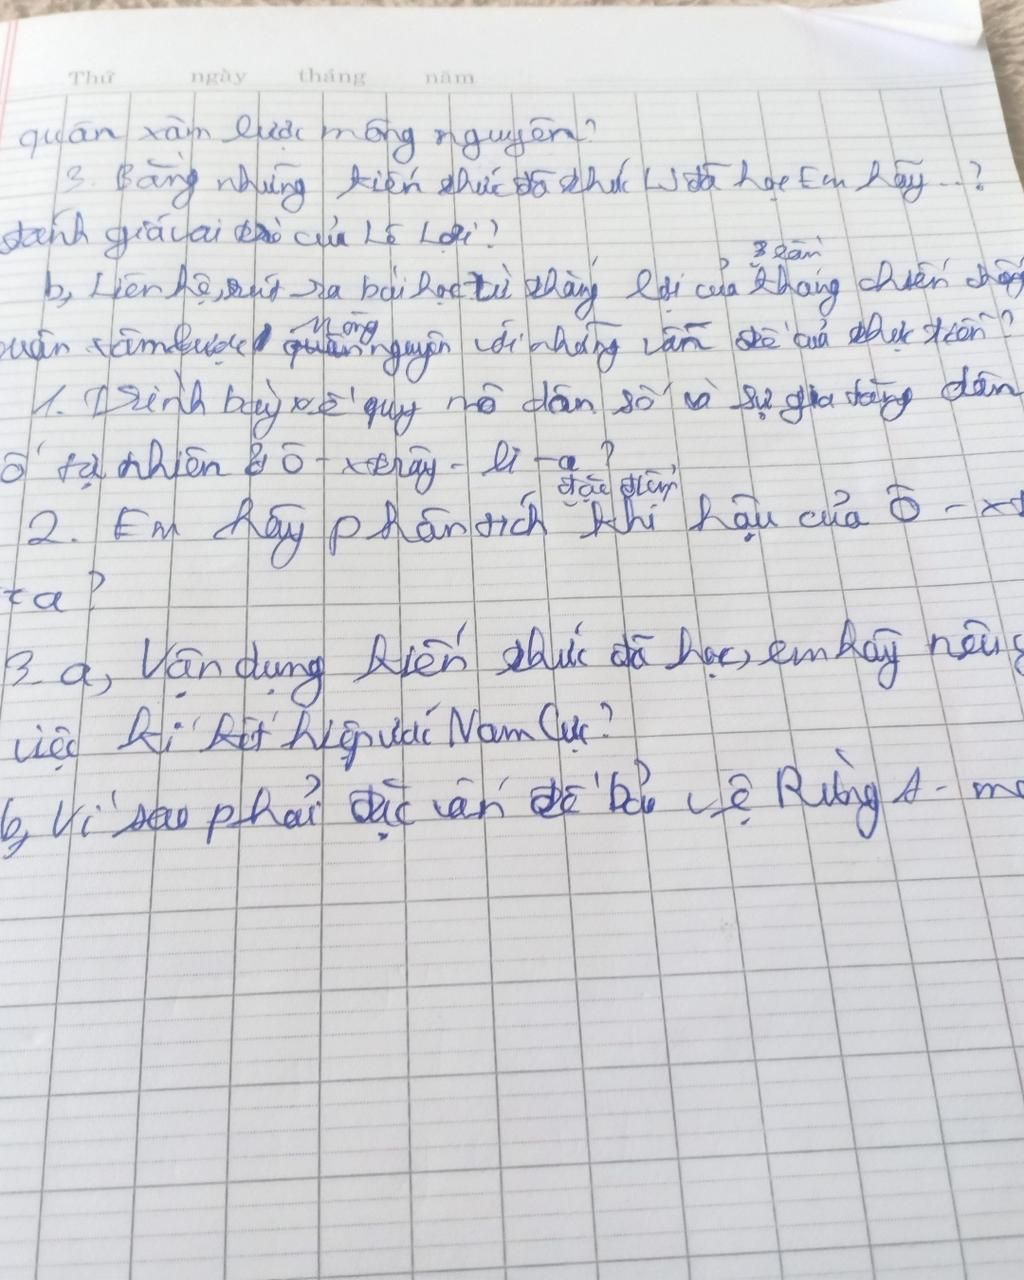 Thứ ngày tháng năm
quân xâm lược mông nguyên?
3. Bằng những kiến thức đã học Em hãy ...?
đánh giá vai trò của Lê Lợi?
b, Liên hệ, rút ra bài học từ thắng lợi của 3 lần kháng chiến chống
quân xâm lược Mông nguyên với những vấn đề của thực tiễn?
1. Trình bày về quy mô dân số và sự gia tăng dân
ố tự nhiên ở Ô-xtrây-li-a?
2. Em hãy phân tích đặc điểm khí hậu của Ô-xt
i a?
3 a, Vận dụng kiến thức đã học, em hãy nêu
việc kí kết hiệp ước Nam Cực?
b, Vì sao phải đặt vấn đề bảo vệ Rừng A-ma